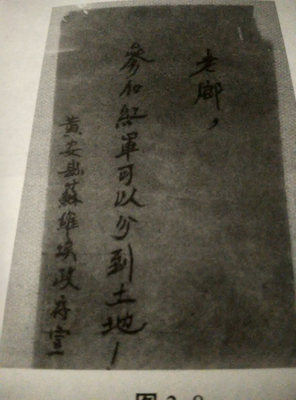 老鄉，
參加紅軍可以分到土地！
黃安縣蘇維埃政府宣
图2-8